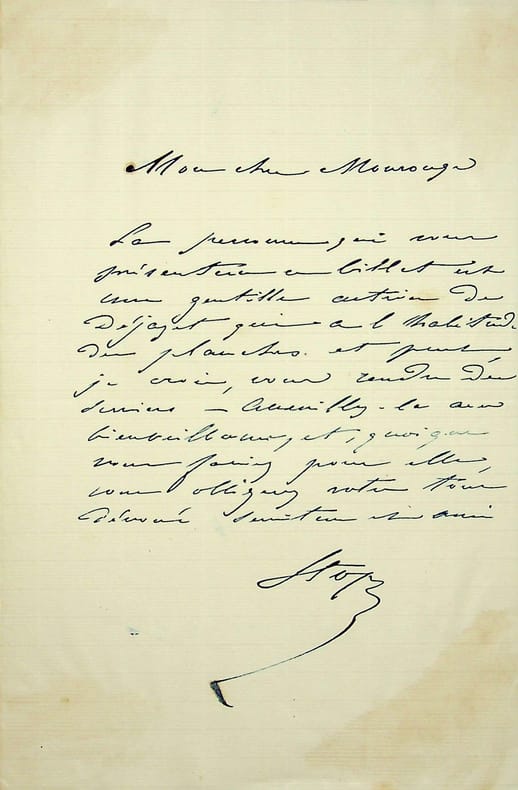 Mon cher Mourouge
La personne qui vous
présentera ce billet est
une gentille actrice de
Déjazet qui a l'habitude
des planches. et peut
je crois, vous rendre des
services — Accueillez-la avec
bienveillance, et, quoique
vous fassiez pour elle,
vous obligerez votre tout
dévoué serviteur et ami
Stop